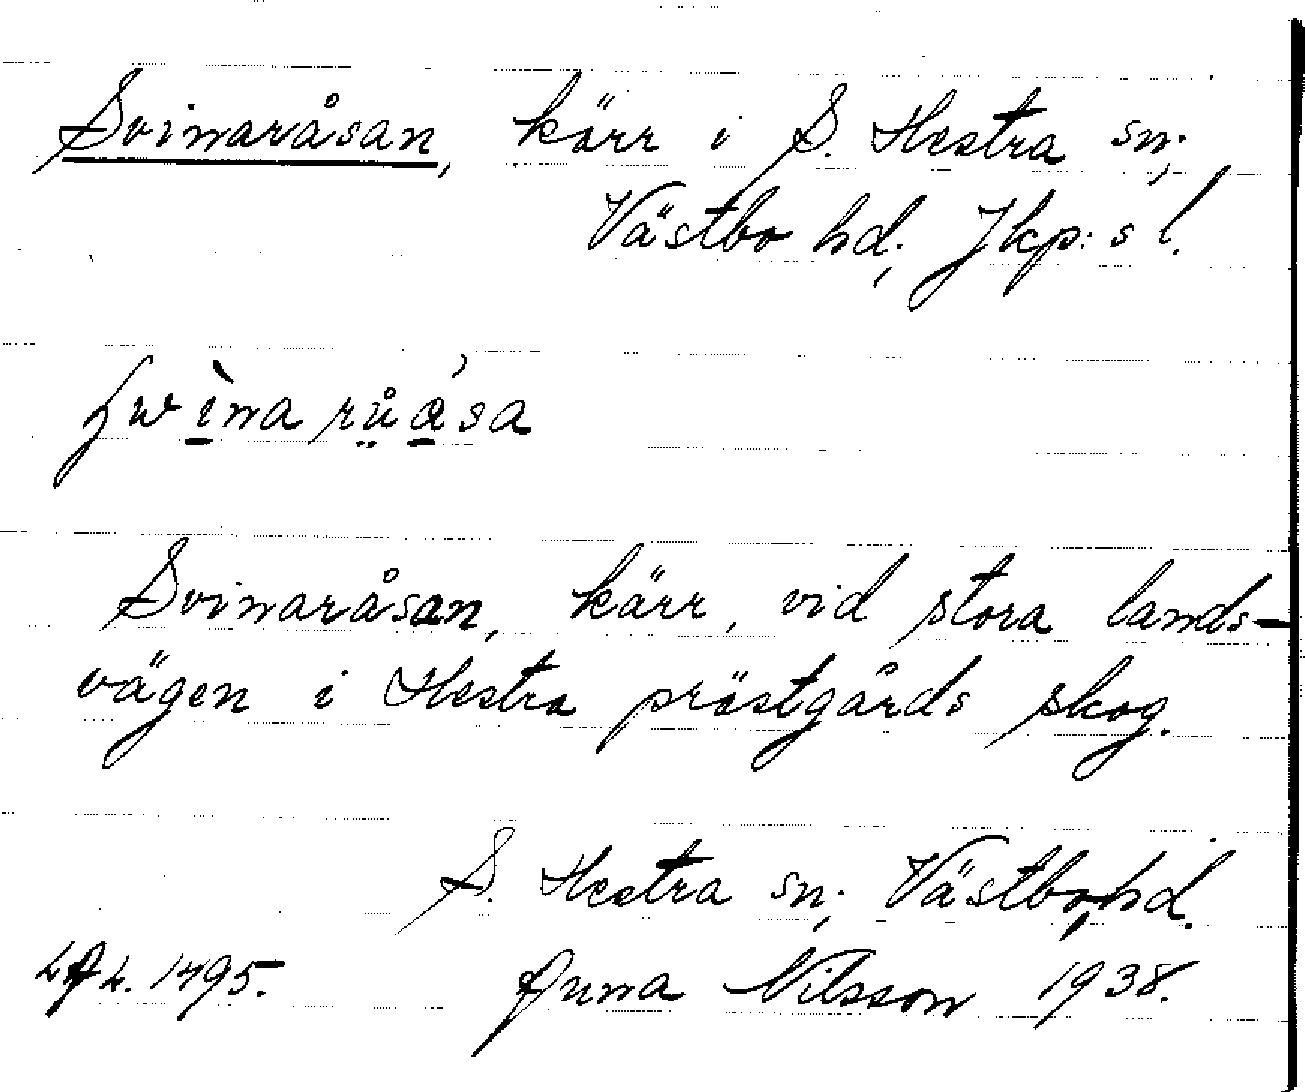 Svinaråsan, kärr i S. Hestra sn;
Västbo hd; Jkp: s l.
Svinaråsan, kärr, vid stora lands-
vägen i Hestra prästgårds skog.
S. Hestra sn; Västbo, hd.
1495. Anna Nilsson 1938.